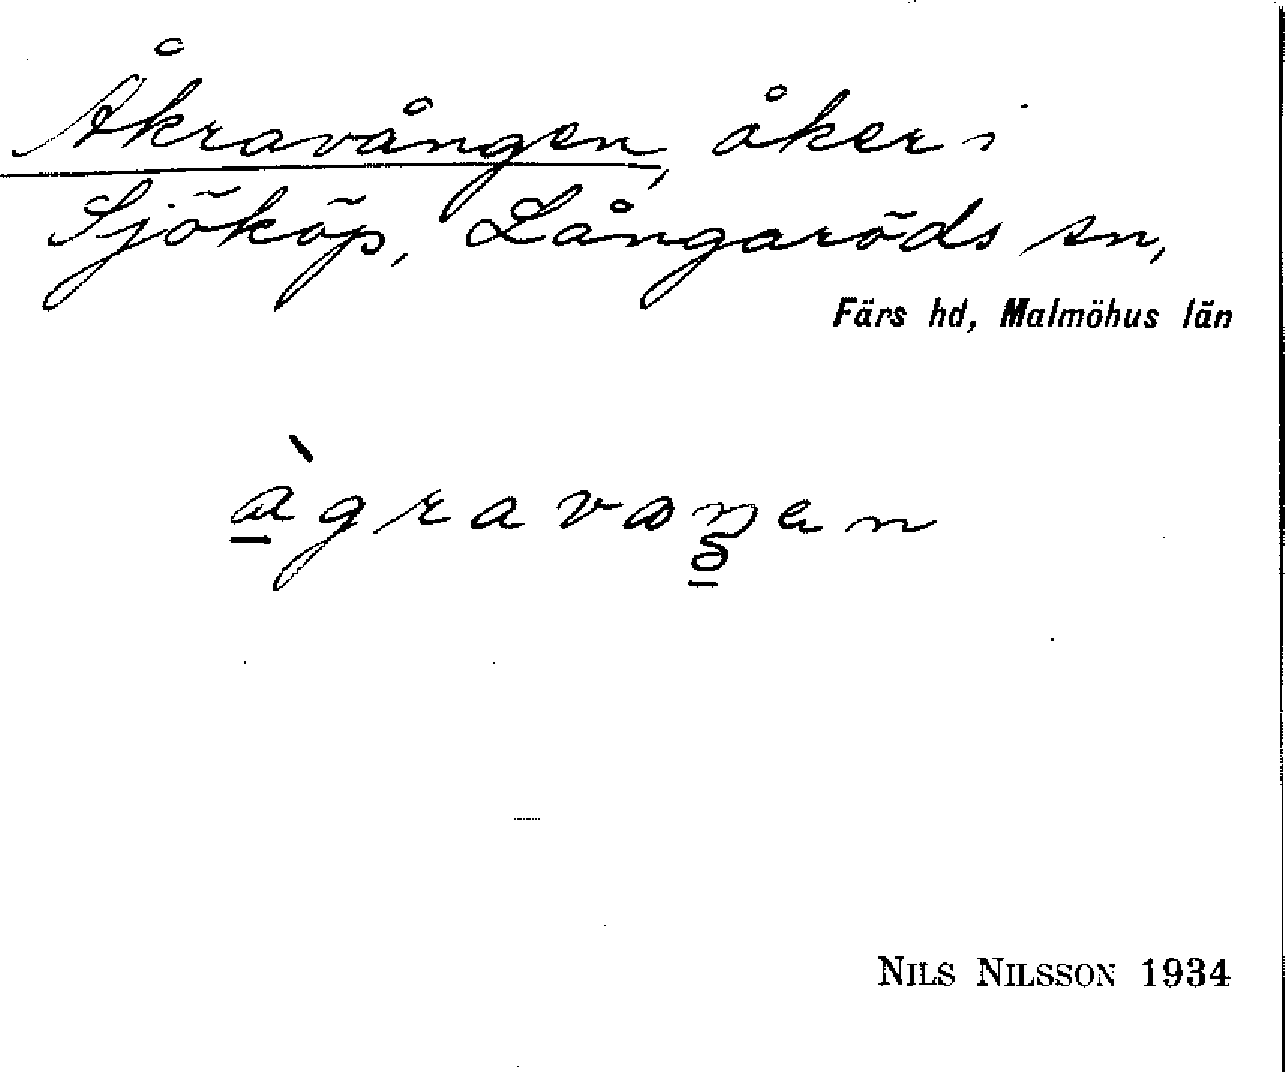 Åkravången, åker i
Sjököp, Långaröds sn,
Färs hd, Malmöhus län
NILS NILSSON 1934